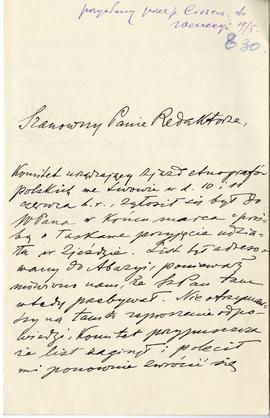 przysłany przez p. do
Wenecyi 19/5.
830.
Szanowny Panie Redaktorze,
Komitet urządzający zjazd etnografów
polskich we Lwowie w d. 10 i 11
czerwca b.r., zgłosił się był do
WPana w końcu marca z proś-
bą o łaskawe przyjęcie udzia-
łu w Zjeździe. List był adreso-
wany do Abazyi, ponieważ
mówiono nam, że SzPan tam
wtedy przebywał. Nie otrzymaw-
szy na tamto zaproszenie odpo-
wiedzi, Komitet przypuszcza
że list zaginął i polecił
mi ponownie zwrócić się